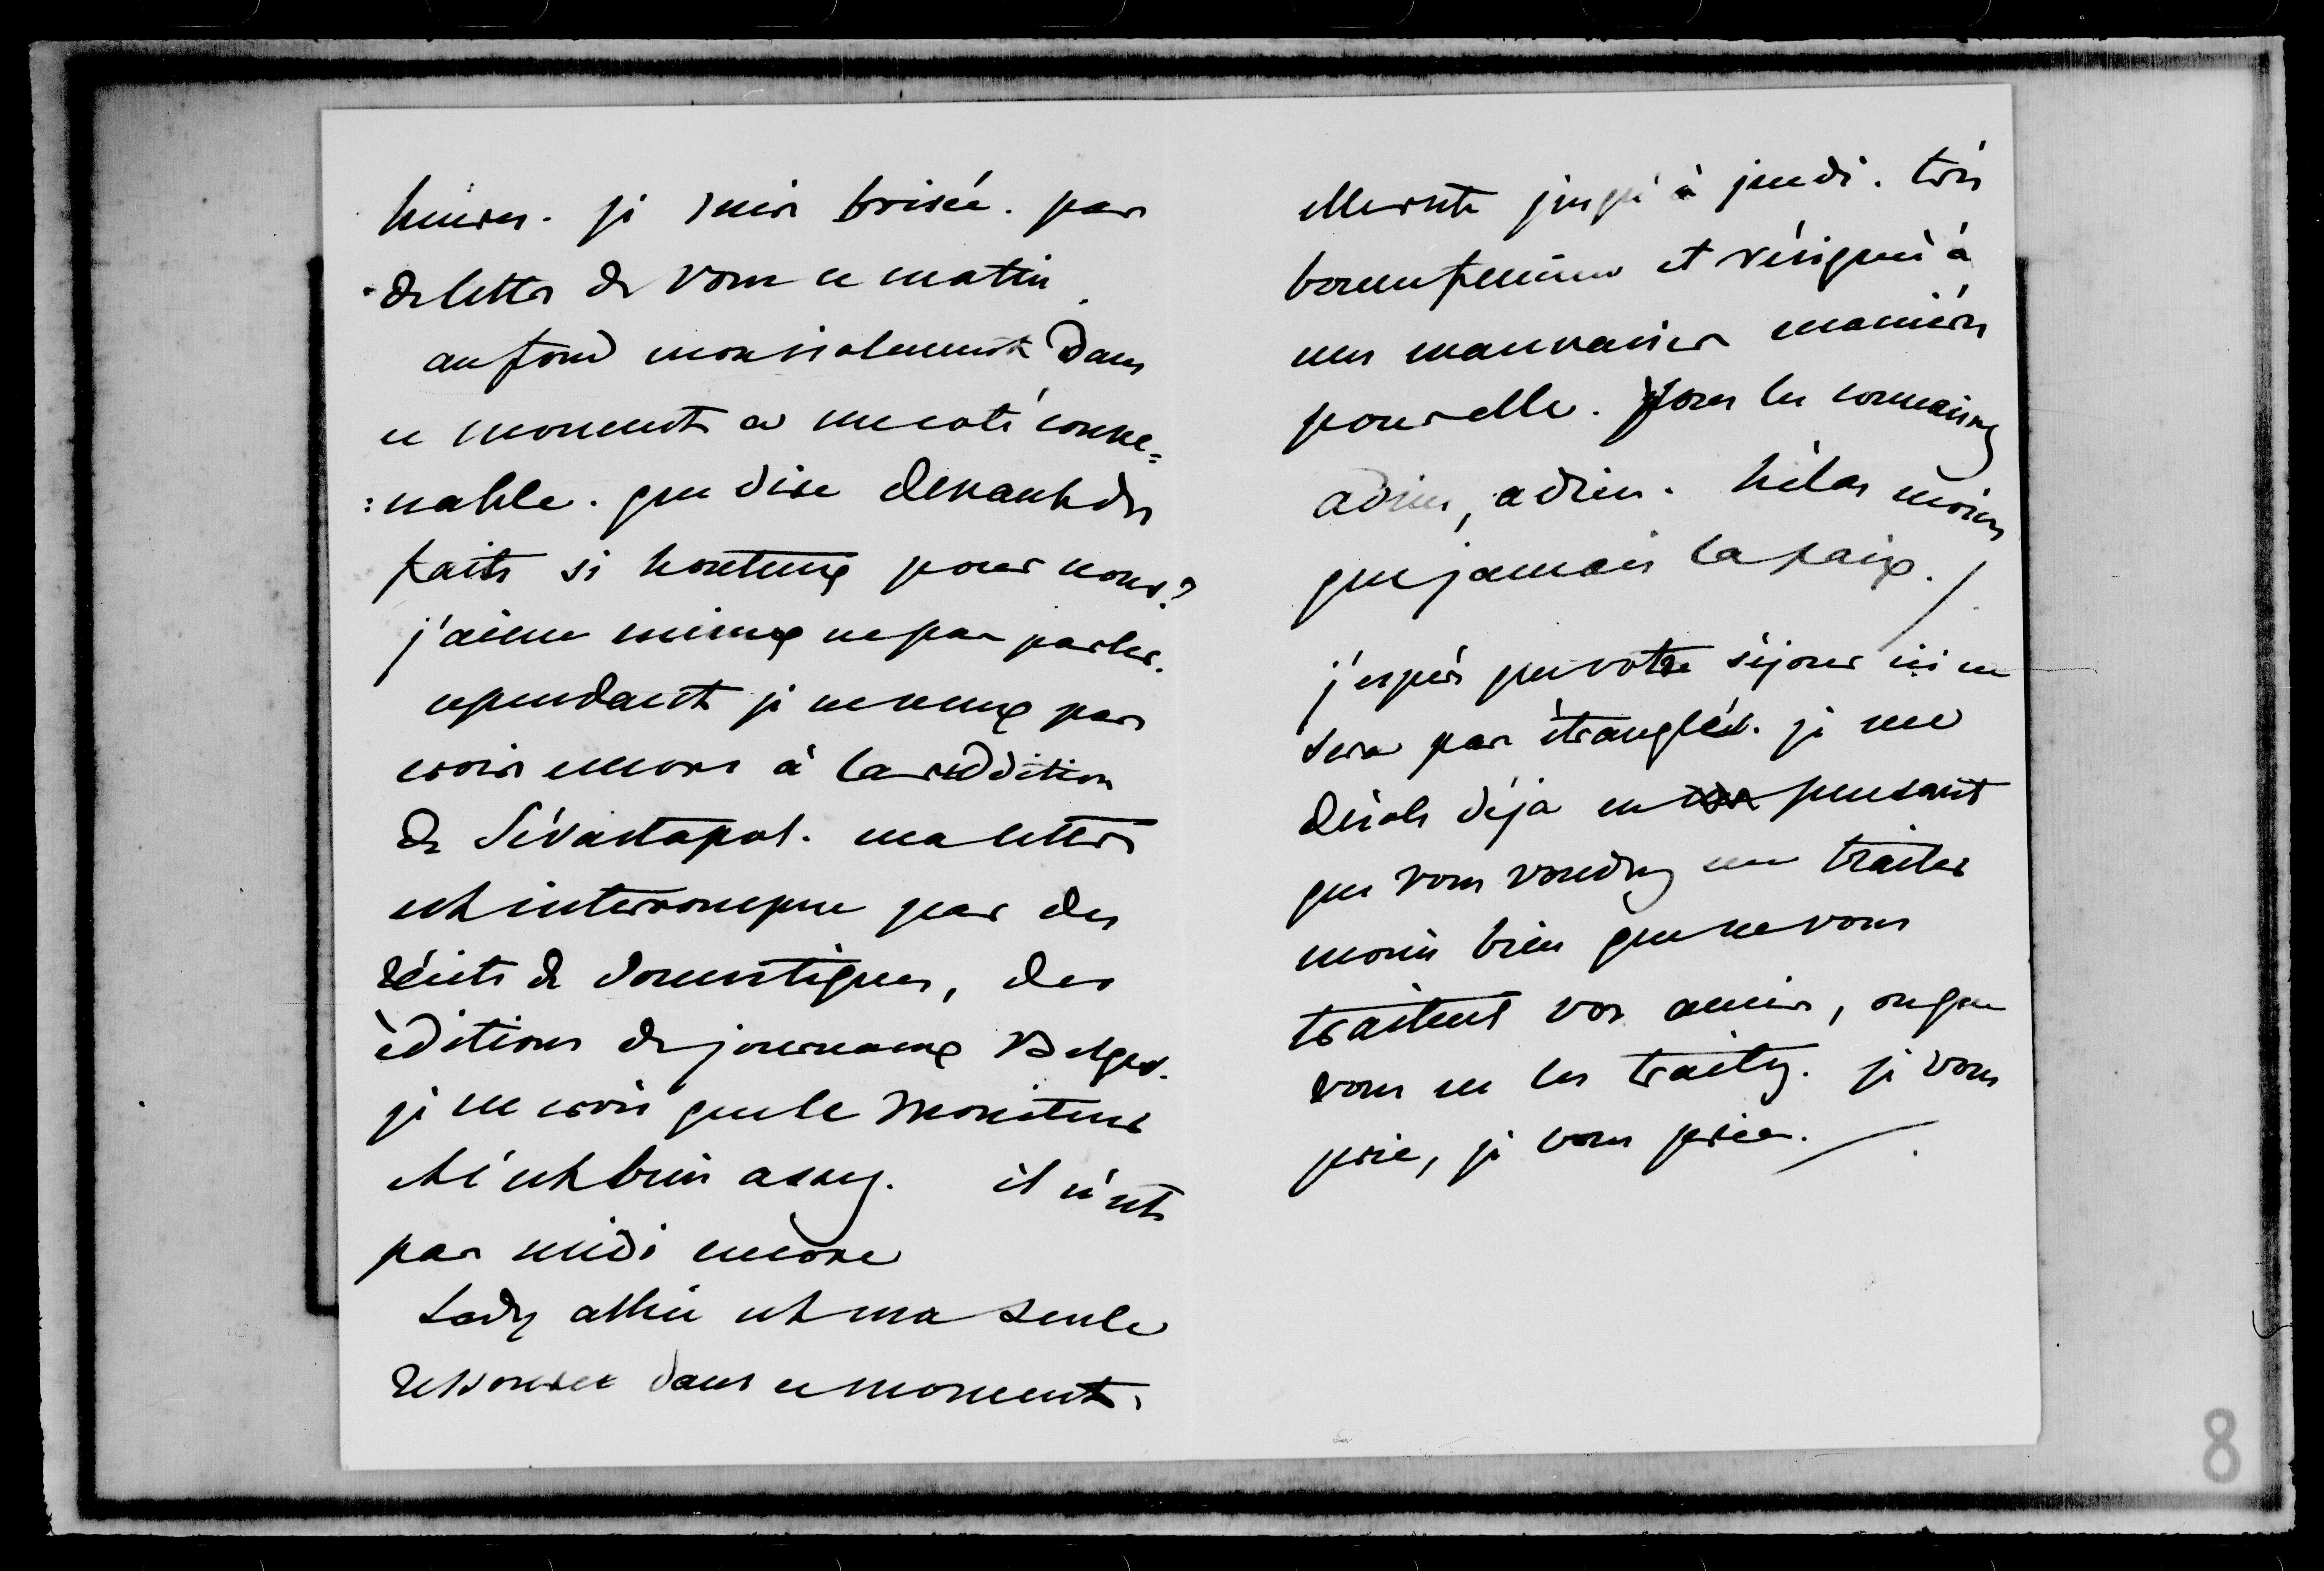 heures. je suis brisée. pas
de lettre de vous ce matin.
au fond mon isolement dans
ce moment a un coté conve=
=nable. que dire devant des
faits si honteux pour nous?
j'aime mieux ne pas parler.
cependant je ne veux pas
croire encore à la reddition
de Sévastopol. ma lettre
est interrompue par des
récits de domestiques, des
éditions de journaux Belges.
je ne crois que le Moniteur
et c'est bien assez. il n'est
pas midi encore
Lady allice est ma seule
ressource dans ce moment.
elle reste jusqu'à jeudi. très
bonne femme et résignée à
mes mauvaises manières
pour elle. Vous les connaissez
adieu, adieu. hélas moins
que jamais la paix.
j'espère que votre séjour ici ne
sera pas étranglé. je me
désole déjà en pensant
que vous voudrez me traiter
moins bien que ne vous
traitent vos amis, ou que
vous ne les traitez. je vous
prie, je vous prie.
8